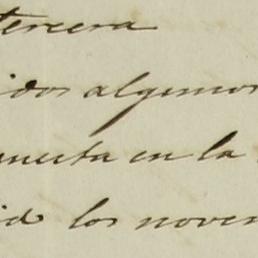 tercera
idos algunos
uesta en la
id los noven